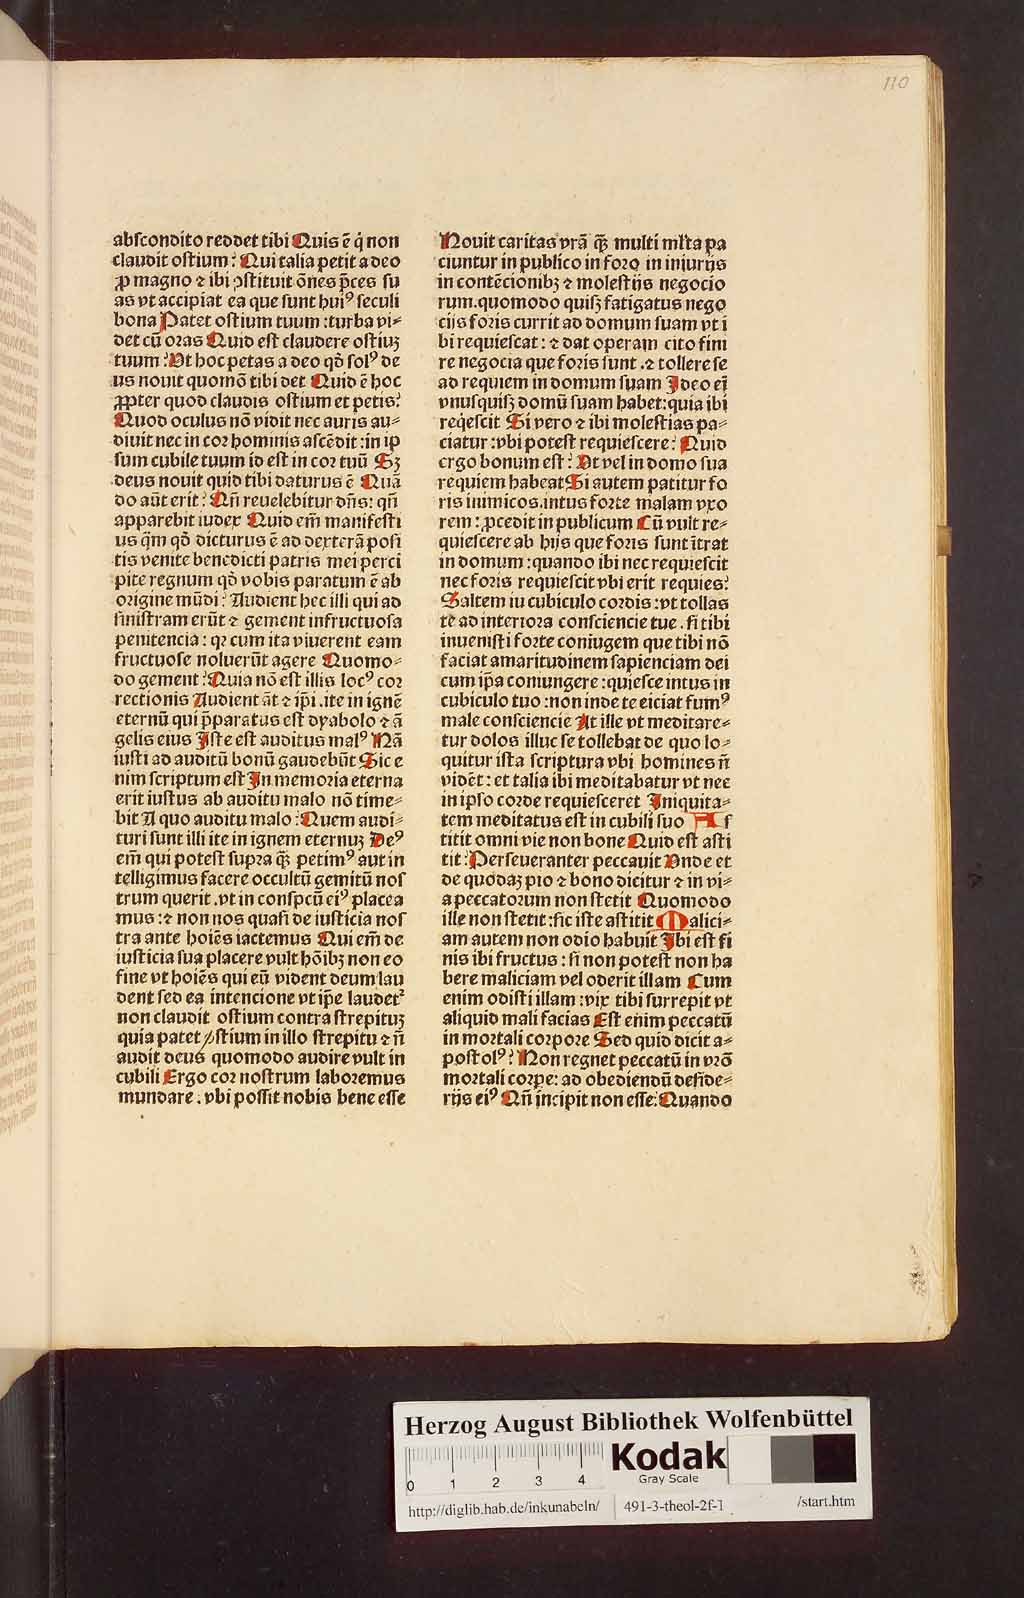 110
abſcondito reddet tibi Quis ē q̇ non
claudit oſtium? Qui talia petit a deo
ꝓ magno ⁊ ibi ꝯſtituit ōnes p̄ces ſu
as vt accipiat ea que ſunt huiꝰ ſeculi
bona Patet oſtium tuum :turba vi⸗
det cū oras Quid eſt claudere oſtiuꝫ
tuum? Vt hoc petas a deo qđ ſolꝰ de
us nouit quomō tibi det Quid ē hoc
ꝓpter quod claudis oſtium et petis?
Quod oculus nō vidit nec auris au⸗
diuit nec in cor hominis aſcēdit :in ip
ſum cubile tuum id eſt in cor tuū Sꝫ
deus nouit quid tibi daturus ē Quā
do aūt erit? Qn̄ reuelebitur dn̄s: qn̄
apparebit iudex Quid em̄ manifeſti
us q̄m qđ dicturus ē ad dexterā poſi
tis venite benedicti patris mei perci
pite regnum qđ vobis paratum ē ab
origine mūdi? Audient hec illi qui ad
ſiniſtram erūt ⁊ gement infructuoſa
penitencia: qꝛ cum ita viuerent eam
fructuoſe noluerūt agere Quomo⸗
do gement? Quia nō eſt illis locꝰ cor
rectionis Audient āt ⁊ ip̄i .ite in ignē
eternū qui p̄paratus eſt dyabolo ⁊ ā
gelis eius Iſte eſt auditus malꝰ Nā
iuſti ad auditū bonū gaudebūt Sic e
nim ſcriptum eſt In memoria eterna
erit iuſtus ab auditu malo nō time⸗
bit A quo auditu malo? Quem audi⸗
turi ſunt illi ite in ignem eternuꝫ Deꝰ
em̄ qui poteſt ſupra qꝫ̄ petimꝰ aut in
telligimus facere occultū gemitū noſ
trum querit .vt in conſpcū eiꝰ placea
mus :⁊ non nos quaſi de iuſticia noſ
tra ante hoīes iactemus Qui em̄ de
iuſticia ſua placere vult hōibꝫ non eo
fine vt hoīes qui eū vident deum lau
dent ſed ea intencione vt ip̄e laudetᷣ
non claudit oſtium contra ſtrepituꝫ
quia patet oſtium in illo ſtrepitu ⁊ n̄
audit deus quomodo audire vult in
cubili Ergo cor noſtrum laboremus
mundare . vbi poſſit nobis bene eſſe
Nouit caritas vrā qꝫ̄ multi ml̄ta pa
ciuntur in publico in foro in iniurijs
in contēcionibꝫ ⁊ moleſtijs negocio
rum.quomodo quiſꝫ fatigatus nego
cijs foris currit ad domum ſuam vt i
bi requieſcat : ⁊ dat operam cito fini
re negocia que foris ſunt .⁊ tollere ſe
ad requiem in domum ſuam Ideo em̄
vnuſquiſꝫ domū ſuam habet:quia ibi
req̇eſcit Si vero ⁊ ibi moleſtias pa⸗
ciatur :vbi poteſt requieſcere? Quid
ergo bonum eſt? Vt vel in domo ſua
requiem habeat Si autem patitur fo
ris inimicos.intus forte malam vxo
rem :ꝓcedit in publicum Cū vult re⸗
quieſcere ab hijs que foris ſunt ītrat
in domum :quando ibi nec requieſcit
nec foris requieſcit vbi erit requies?
Saltem iu cubiculo cordis :vt tollas
te ad interiora conſciencie tue . ſi tibi
inueniſti forte coniugem que tibi nō
faciat amaritudinem ſapienciam dei
cum ip̄a coniungere :quieſce intus in
cubiculo tuo :non inde te eiciat fumꝰ
male conſciencie At ille vt meditare⸗
tur dolos illuc ſe tollebat de quo lo⸗
quitur iſta ſcriptura vbi homines n̄
vidēt : et talia ibi meditabatur vt nec
in ipſo corde requieſceret Iniquita⸗
tem meditatus eſt in cubili ſuo Aſ
titit omni vie non bone Quid eſt aſti
tit? Perſeueranter peccauit Vnde et
de quodaꝫ pio ⁊ bono dicitur ⁊ in vi⸗
a peccatorum non ſtetit Quomodo
ille non ſtetit :ſic iſte aſtitit Malici⸗
am autem non odio habuit Ibi eſt fi
nis ibi fructus : ſi non poteſt non ha
bere maliciam vel oderit illam Cum
enim odiſti illam :vix tibi ſurrepit vt
aliquid mali facias Eſt enim peccatū
in mortali corpore Sed quid dicit a⸗
poſtolꝰ? Non regnet peccatū in vrō
mortali corpe: ad obediendū deſide⸗
rijs eiꝰ Qn̄ incipit non eſſe? Quando
Herzog August Bibliothek Wolfenbüttel
0 1 2 3 4
Kodak
Gray Scale
http://diglib.hab.de/inkunabeln/ 491-3-theol-2f-1 /start.htm